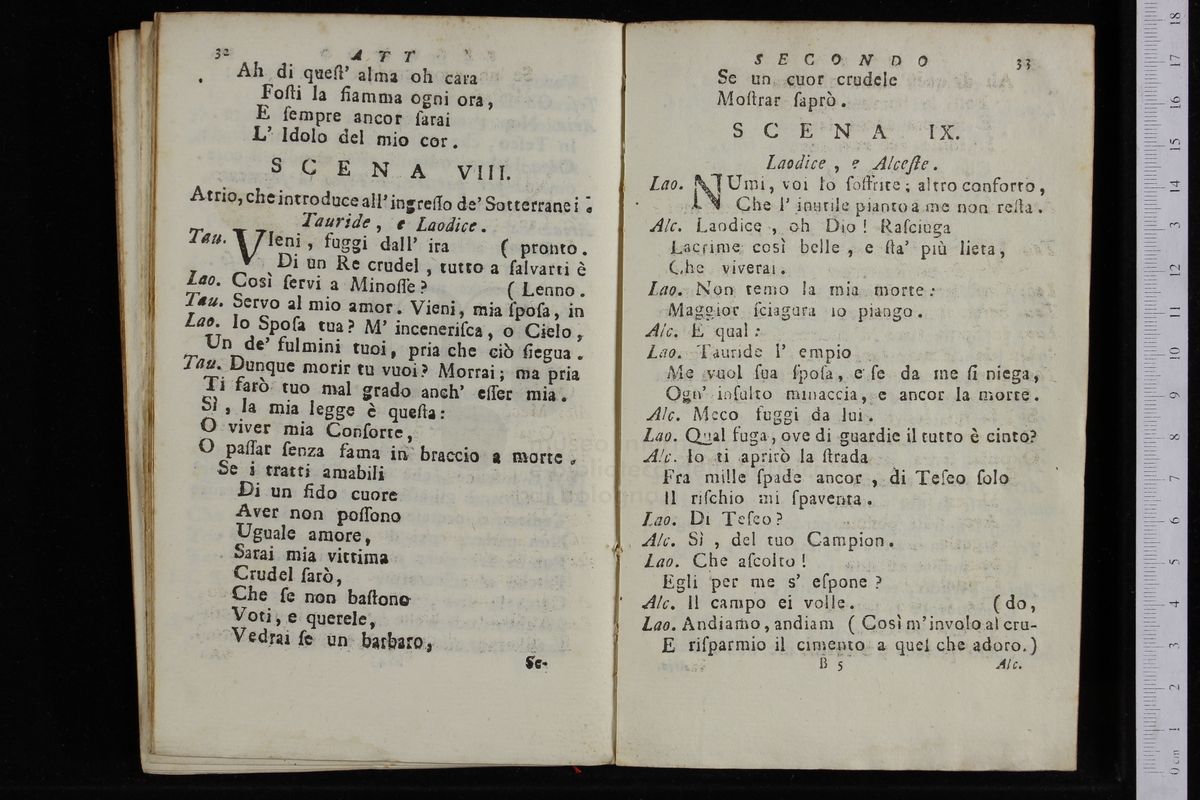 32 A T T
Ah di queſt' alma oh cara
Foſti la fiamma ogni ora,
E ſempre ancor ſarai
L' Idolo del mio cor.
S C E N A VIII.
Atrio, che introduce all' ingreſſo de' Sotterranei.
Tauride, e Laodice.
Tau. VIeni, fuggi dall' ira ( pronto.
Di un Re crudel, tutto a ſalvarti è
Lao. Così ſervi a Minoſſe? ( Lenno.
Tau. Servo al mio amor. Vieni, mia ſpoſa, in
Lao. Io Spoſa tua? M' inceneriſca, o Cielo,
Un de' fulmini tuoi, pria che ciò ſiegua.
Tau. Dunque morir tu vuoi? Morrai; ma pria
Ti farò tuo mal grado anch' eſſer mia.
Sì, la mia legge è queſta:
O viver mia Conſorte,
O paſſar ſenza fama in braccio a morte.
Se i tratti amabili
Di un fido cuore
Aver non poſſono
Uguale amore,
Sarai mia vittima
Crudel ſarò,
Che ſe non baſtono
Voti, e querele,
Vedrai ſe un barbaro,
Se-
S E C O N D O 33
Se un cuor crudele
Moſtrar ſaprò.
S C E N A IX.
Laodice, e Alceſte.
Lao. NUmi, voi lo ſoffrite; altro conforto,
Che l' inutile pianto a me non reſta.
Alc. Laodice, oh Dio! Raſciuga
Lacrime così belle, e ſta' più lieta,
Che viverai.
Lao. Non temo la mia morte:
Maggior ſciagura io piango.
Alc. E qual:
Lao. Tauride l' empio
Me vuol ſua ſpoſa, e ſe da me ſi niega,
Ogn' inſulto minaccia, e ancor la morte.
Alc. Meco fuggi da lui.
Lao. Qual fuga, ove di guardie il tutto è cinto?
Alc. Io ti aprirò la ſtrada
Fra mille ſpade ancor, di Teſeo ſolo
Il riſchio mi ſpaventa.
Lao. Di Teſeo?
Alc. Sì, del tuo Campion.
Lao. Che aſcolto!
Egli per me s' eſpone?
Alc. Il campo ei volle. ( do,
Lao. Andiamo, andiam ( Così m'involo al cru-
E riſparmio il cimento a quel che adoro.)
B 5 Alc.